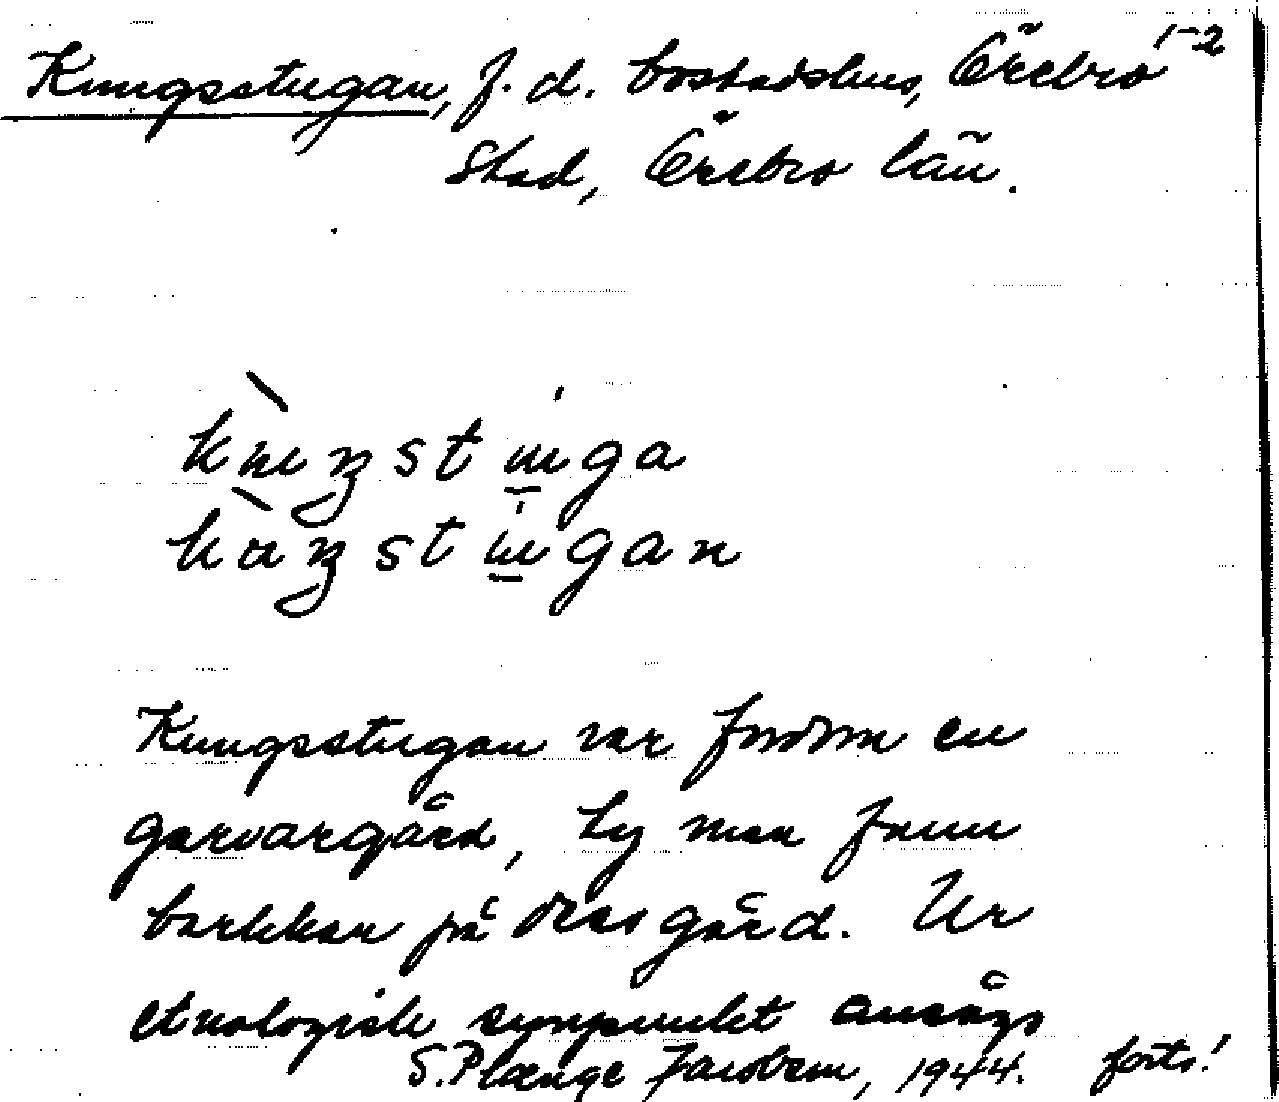 Kungsstugan, f.d. bostadshus, Örebro 1-2
Stad, Örebro län.
kuŋstuga
kuŋstugan
Kungsstugan var fordom en
garvargård, ty man fann
barkkar på dess gård. Ur
etnologisk synpunkt ansågs
S. Plænge Jacobson, 1944. forts!